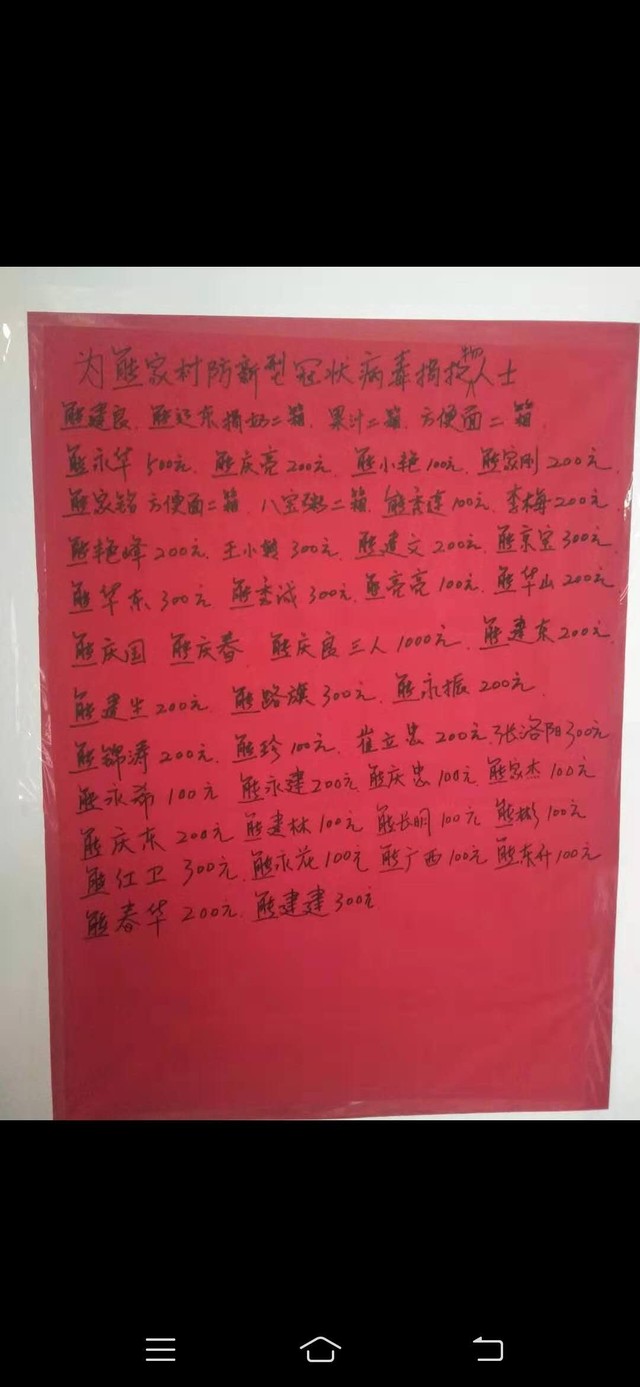 为熊家村防新型冠状病毒捐款物人士
熊建良、熊运东捐奶二箱、果汁二箱、方便面二箱
熊永华500元、熊庆亮200元、熊小艳100元、熊家刚200元
熊家铭方便面二箱、八宝粥二箱、熊秀莲100元、李梅200元
熊艳峰200元、王小转300元、熊建文200元、熊京宝300元
熊华东300元、熊秀成300元、熊亮亮100元、熊华山200元
熊庆国 熊庆春、熊庆良三人1000元、熊建东200元
熊建生200元、熊路旗300元、熊永振200元
熊锦涛200元、熊珍100元、崔立忠200元、张洛阳300元
熊永希100元 熊永建200元、熊庆忠100元、熊家杰100元
熊庆东200元、熊建林100元 熊长明100元 熊彬100元
熊红卫300元、熊永花100元 熊广西100元 熊东升100元
熊春华200元、熊建建300元